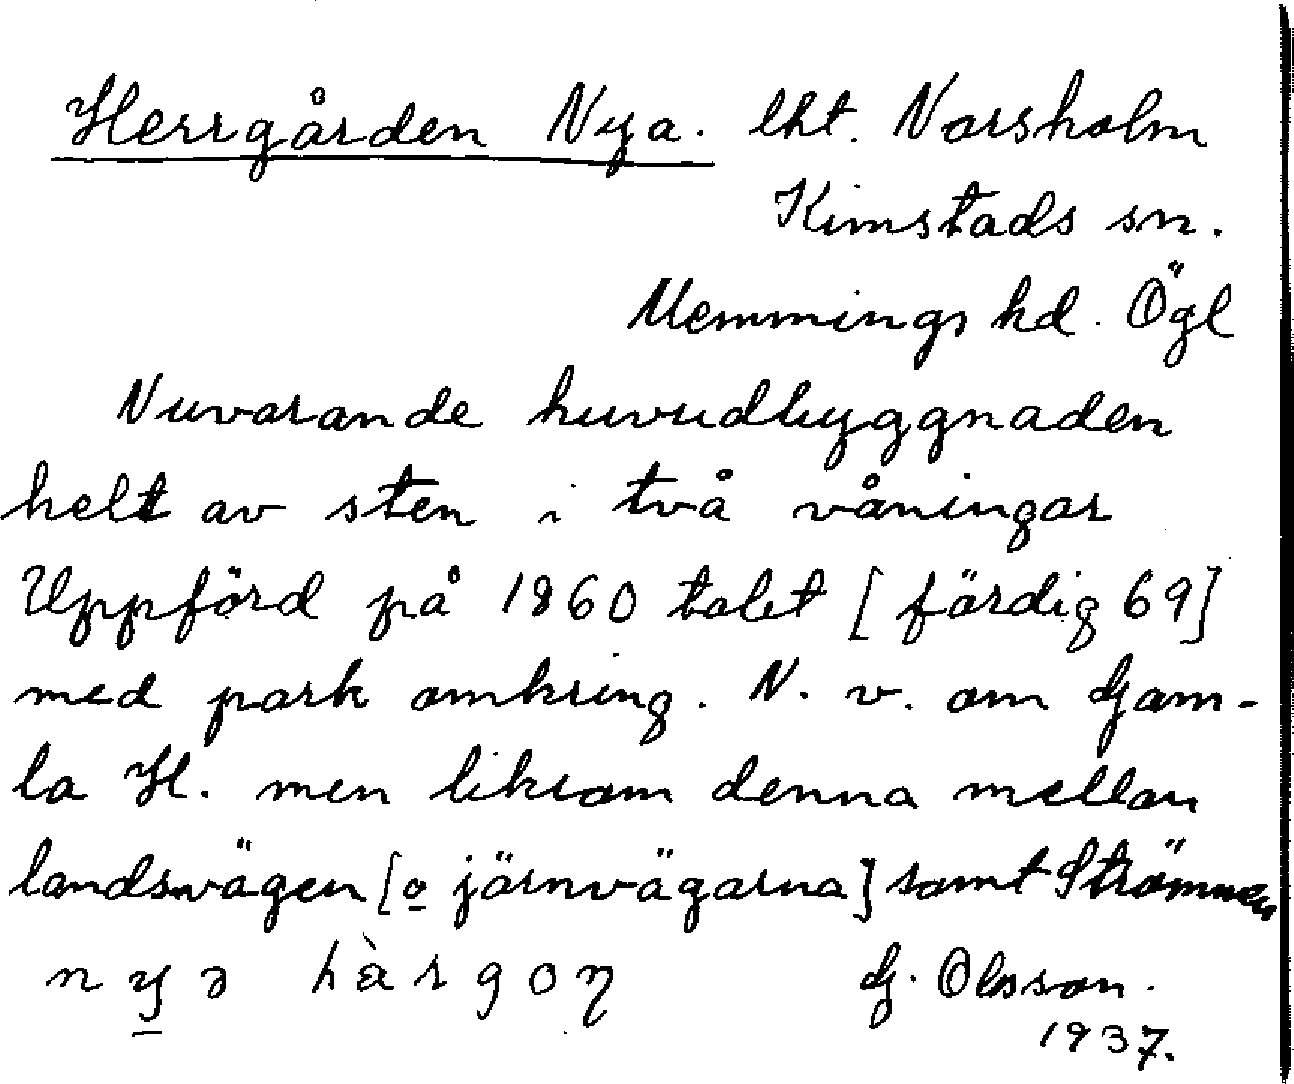 Herrgården Nya. lht. Norsholm
Kimstads sn.
Memmings hd. Ögl
Nuvarande huvudbyggnaden
helt av sten i två våningar
Uppförd på 1860 talet [färdig 69]
med park omkring. N. v. om Gam-
la H. men liksom denna mellan
landsvägen [o järnvägarna] samt Strömmen
nyə hàrgoŋ G. Olsson.
1937.